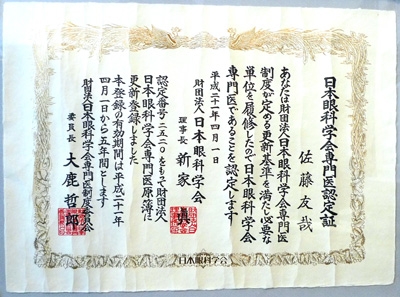 日本眼科学会専門医認定証
佐藤友哉
あなたは財団法人日本眼科学会専門医
制度が定める更新基準を満たし必要な
単位を履修したので日本眼科学会
専門医であることを認定します
平成二十一年四月一日
財団法人日本眼科学会
理事長 新家 眞
認定番号二五二〇をもって財団法人
日本眼科学会専門医原簿に
更新登録しました
本登録の有効期間は平成二十一年
四月一日から五年間とします
財団法人日本眼科学会専門医制度委員会
委員長 大鹿哲郎
日本眼科学会